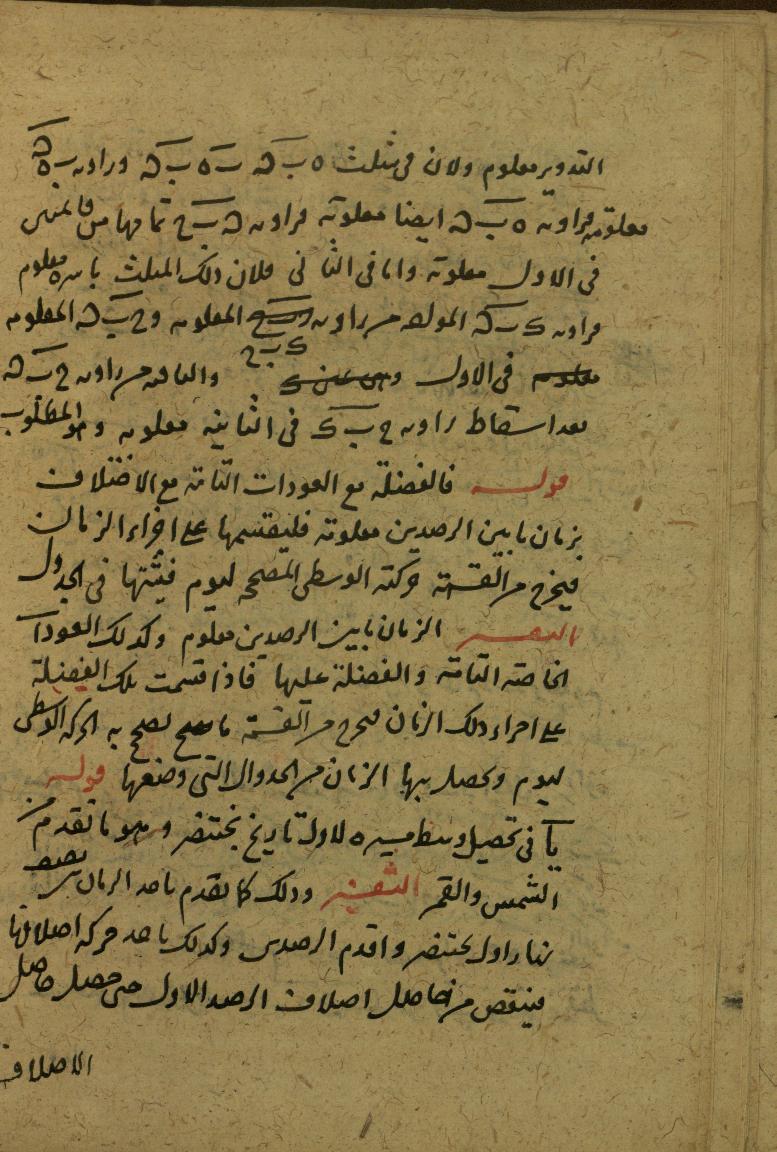 التدوير معلوم ولان فى مثلث ه ب د ب ه ب د وزاوية ب ه د
معلومة فزاوية ه ب د ايضا معلومة فزاوية د ب ح تمامها من قائمتين
فى الاول معلومة واما فى الثانى فلان ذلك المثلث باسره معلوم
فزاوية ك ب د المولفة من زاوية المعلومة و ح ب د المعلومة
معلوم فى الاول ك ب ح والباقية من زاوية ح ب د
بعد اسقاط زاوية ح ب ك فى الثانية معلومة وهو المطلوب
قوله فالفضلة مع العودات التامة مع الاختلاف
بزمان ما بين الرصدين معلومة فليقسمها على اجزاء الزمان
فيخرج من القسمة حركته الوسطى المصححة ليوم فيثبتها فى الجدول
التفسير الزمان ما بين الرصدين معلوم وكذلك العودات
الخاصة التامة والفضلة عليها فاذا قسمت تلك الفضلة
على اجزاء ذلك الزمان فيخرج من القسمة ما يصحح به الحركة الوسطى
ليوم ويحصل بها الزمان من الجداول التى وضعها قوله
يا فى تحصيل وسط مسيره لاول تاريخ بختنصر وهو ما تقدم من
الشمس والقمر التفسير وذلك كما تقدم ياخذ الزمان بين نصف
نهار اول بختنصر واقدم الرصدين وكذلك ياخذ حركة اختلافها
فينقص من حاصل اختلاف الرصد الاول حتى حصل حاصل
الاختلاف